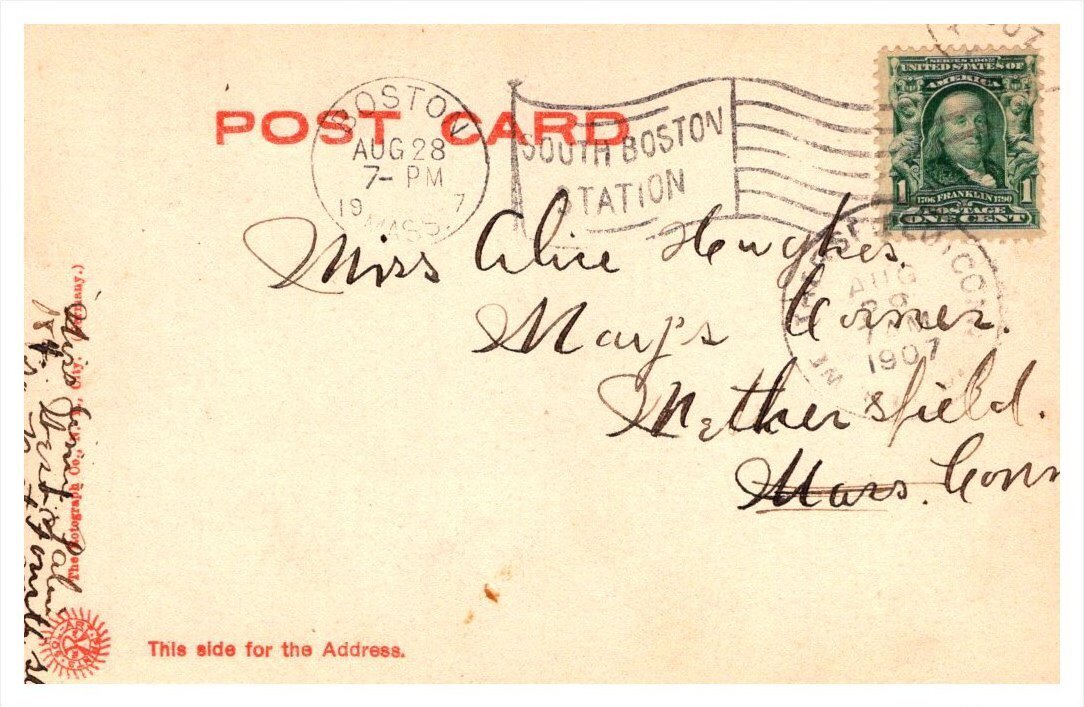 POST CARD
BOSTON
AUG 28
7- PM
19 7
MASS.
SOUTH BOSTON
STATION
SERIES 1902
UNITED STATES OF
AMERICA
1 1
1706 FRANKLIN 1790
POSTAGE
ONE CENT
Miss Alice Hughes.
Mary's Corner.
Wethersfield.
Mass. Conn
AUG
1907
CONN
Miss
184 West
The Rotograph Co., N.Y. City. (Germany.)
SOL-ART
This side for the Address.